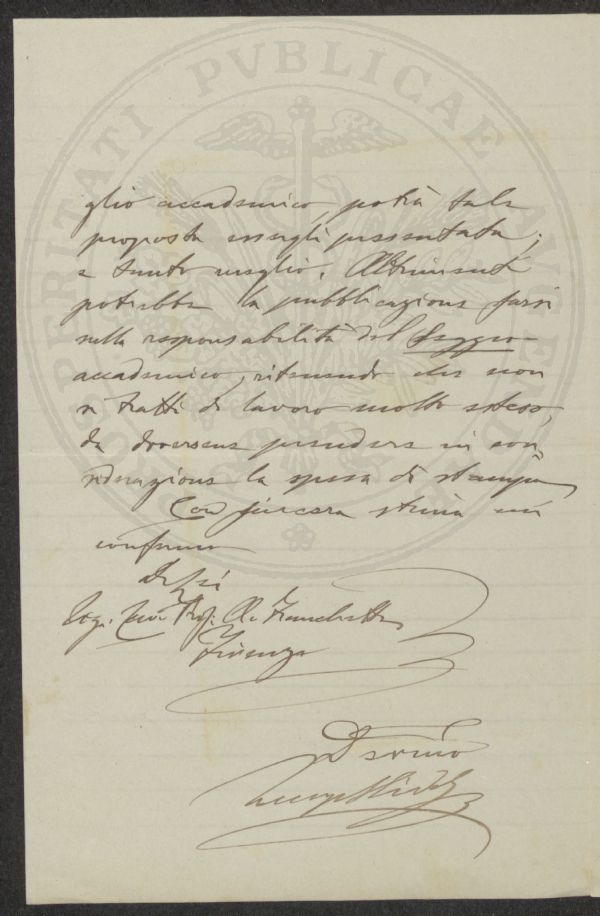 PROSPERITATI PVBLICAE AVGENDAE
glio accademico, potrà tale
proposta essergli presentata;
e tanto meglio. Altrimenti
potrebbe la pubblicazione farsi
sulla responsabilità del Seggio
accademico, ritenendo che non
si tratti di lavoro molto esteso,
da doversene prendere in con
siderazione la spesa di stampa
Con sincera stima mi
confermo
Di Lei
Egr. Prof. A. Franchetti
Firenze
Devmo